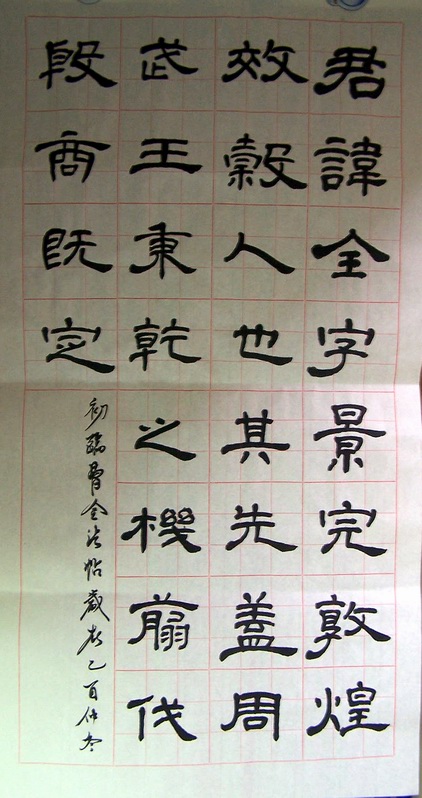 君諱全字景完敦煌
效穀人也其先蓋周
武王秉乾之機翦伐
殷商既定
初臨曹全法帖歲在乙酉仲冬